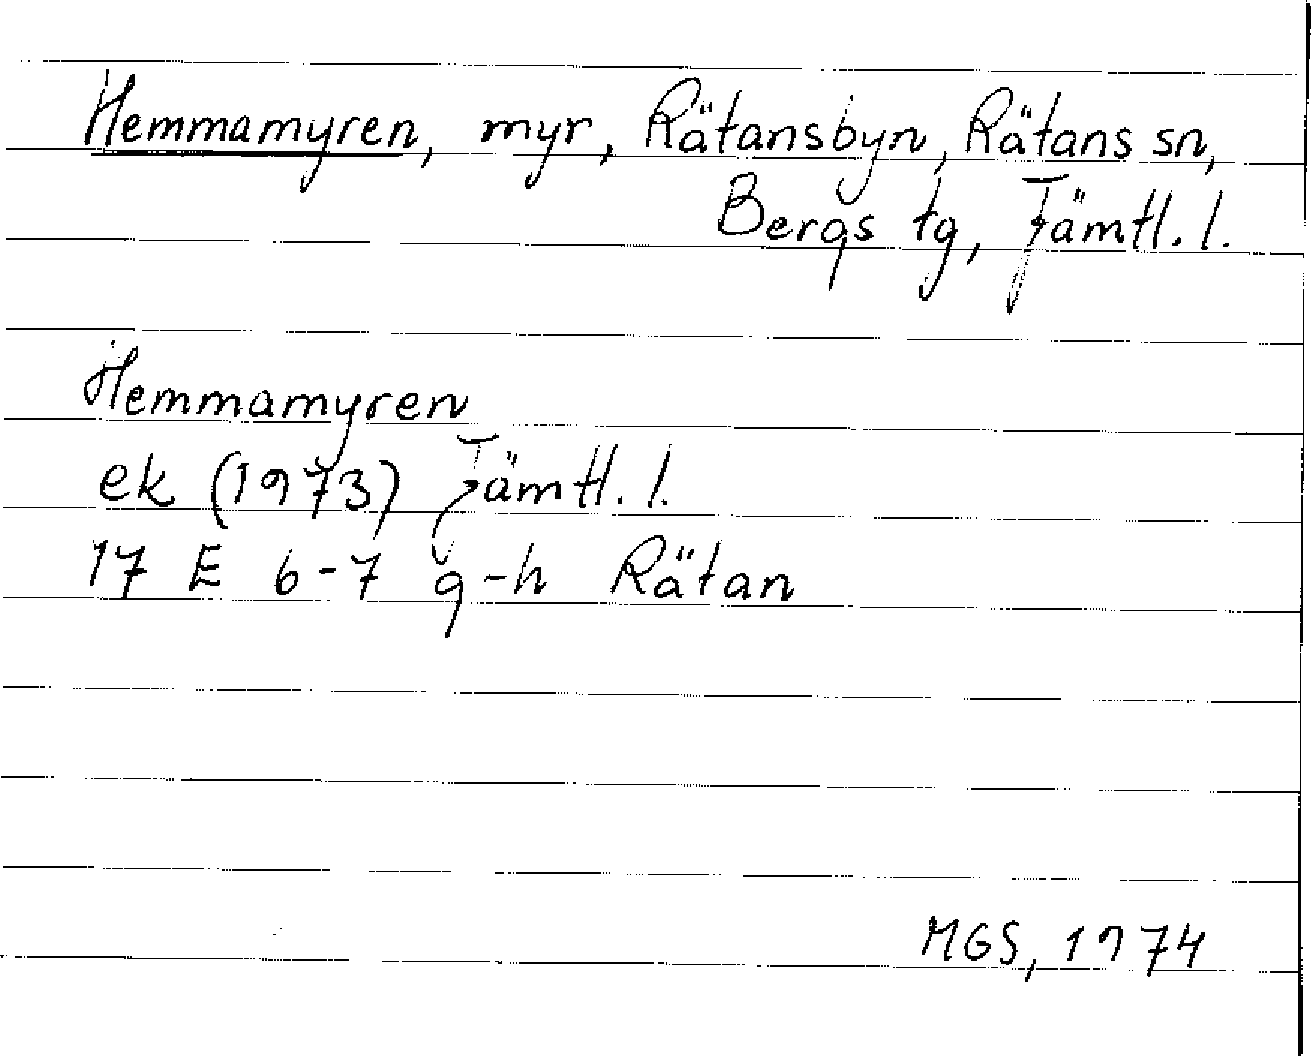 Hemmamyren, myr, Rätansbyn, Rätans sn,
Bergs tg, Jämtl. l.
Hemmamyren
ek (1973) Jämtl. l.
17 E 6-7 g-h Rätan
MGS, 1974